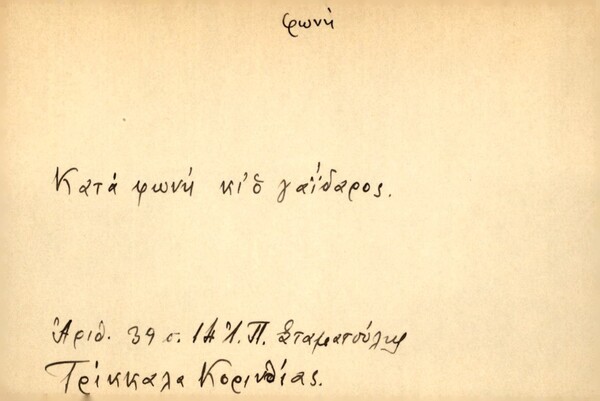 φωνή
Κατά φωνή κι' ὁ γαΐδαρος.
Ἀριθ. 39 σ. 14 Ἀ. Π. Σταματούλης
Τρίκκαλα Κορινθίας.